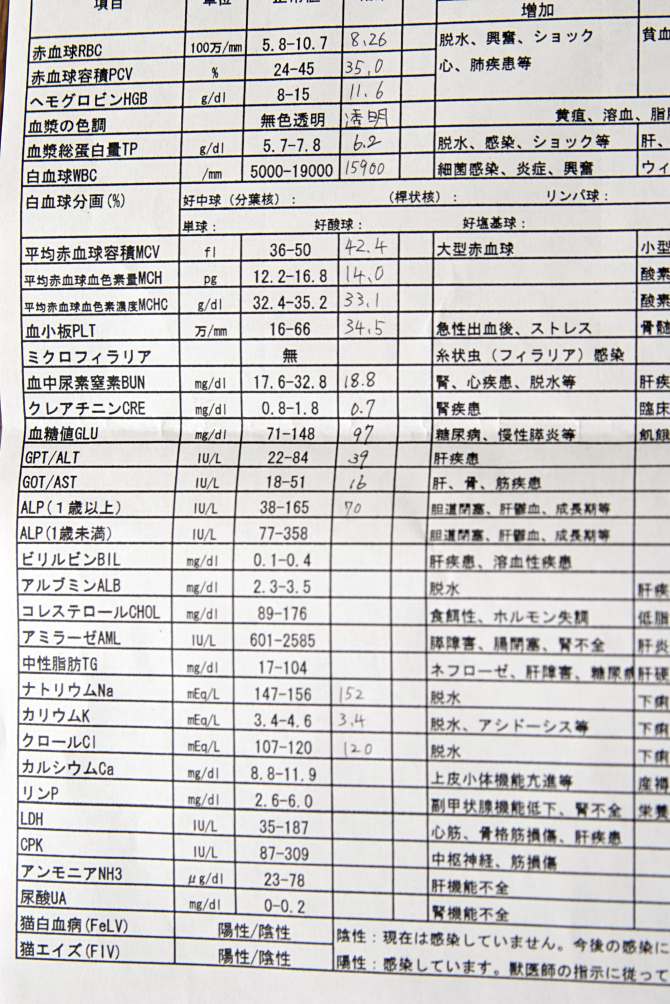 項目 単位 正常値
増加
赤血球RBC 100万/mm 5.8-10.7 8.26 脱水、興奮、ショック 貧血
赤血球容積PCV % 24-45 35.0 心、肺疾患等
ヘモグロビンHGB g/dl 8-15 11.6
血漿の色調 無色透明 透明 黄疸、溶血、脂
血漿総蛋白量TP g/dl 5.7-7.8 6.2 脱水、感染、ショック等 肝、
白血球WBC /mm 5000-19000 15900 細菌感染、炎症、興奮 ウィ
白血球分画(%) 好中球（分葉核）： （桿状核）： リンパ球：
単球： 好酸球： 好塩基球：
平均赤血球容積MCV fl 36-50 42.4 大型赤血球 小型
平均赤血球血色素量MCH pg 12.2-16.8 14.0 酸素
平均赤血球血色素濃度MCHC g/dl 32.4-35.2 33.1 酸素
血小板PLT 万/mm 16-66 34.5 急性出血後、ストレス 骨髄
ミクロフィラリア 無 糸状虫（フィラリア）感染
血中尿素窒素BUN mg/dl 17.6-32.8 18.8 腎、心疾患、脱水等 肝疾
クレアチニンCRE mg/dl 0.8-1.8 0.7 腎疾患 臨床
血糖値GLU mg/dl 71-148 97 糖尿病、慢性膵炎等 飢餓
GPT/ALT IU/L 22-84 39 肝疾患
GOT/AST IU/L 18-51 16 肝、骨、筋疾患
ALP(１歳以上) IU/L 38-165 70 胆道閉塞、肝鬱血、成長期等
ALP(1歳未満) IU/L 77-358 胆道閉塞、肝鬱血、成長期等
ビリルビンBIL mg/dl 0.1-0.4 肝疾患、溶血性疾患
アルブミンALB mg/dl 2.3-3.5 脱水 肝疾
コレステロールCHOL mg/dl 89-176 食餌性、ホルモン失調 低脂
アミラーゼAML IU/L 601-2585 膵障害、腸閉塞、腎不全 肝炎
中性脂肪TG mg/dl 17-104 ネフローゼ、肝障害、糖尿病 肝硬
ナトリウムNa mEq/L 147-156 152 脱水 下痢
カリウムK mEq/L 3.4-4.6 3.4 脱水、アシドーシス等 下痢
クロールCl mEq/L 107-120 120 脱水 下痢
カルシウムCa mg/dl 8.8-11.9 上皮小体機能亢進等 産褥
リンP mg/dl 2.6-6.0 副甲状腺機能低下、腎不全 栄養
LDH IU/L 35-187 心筋、骨格筋損傷、肝疾患
CPK IU/L 87-309 中枢神経、筋損傷
アンモニアNH3 μg/dl 23-78 肝機能不全
尿酸UA mg/dl 0-0.2 腎機能不全
猫白血病(FeLV) 陽性/陰性 陰性：現在は感染していません。今後の感染に
猫エイズ(FIV) 陽性/陰性 陽性：感染しています。獣医師の指示に従って